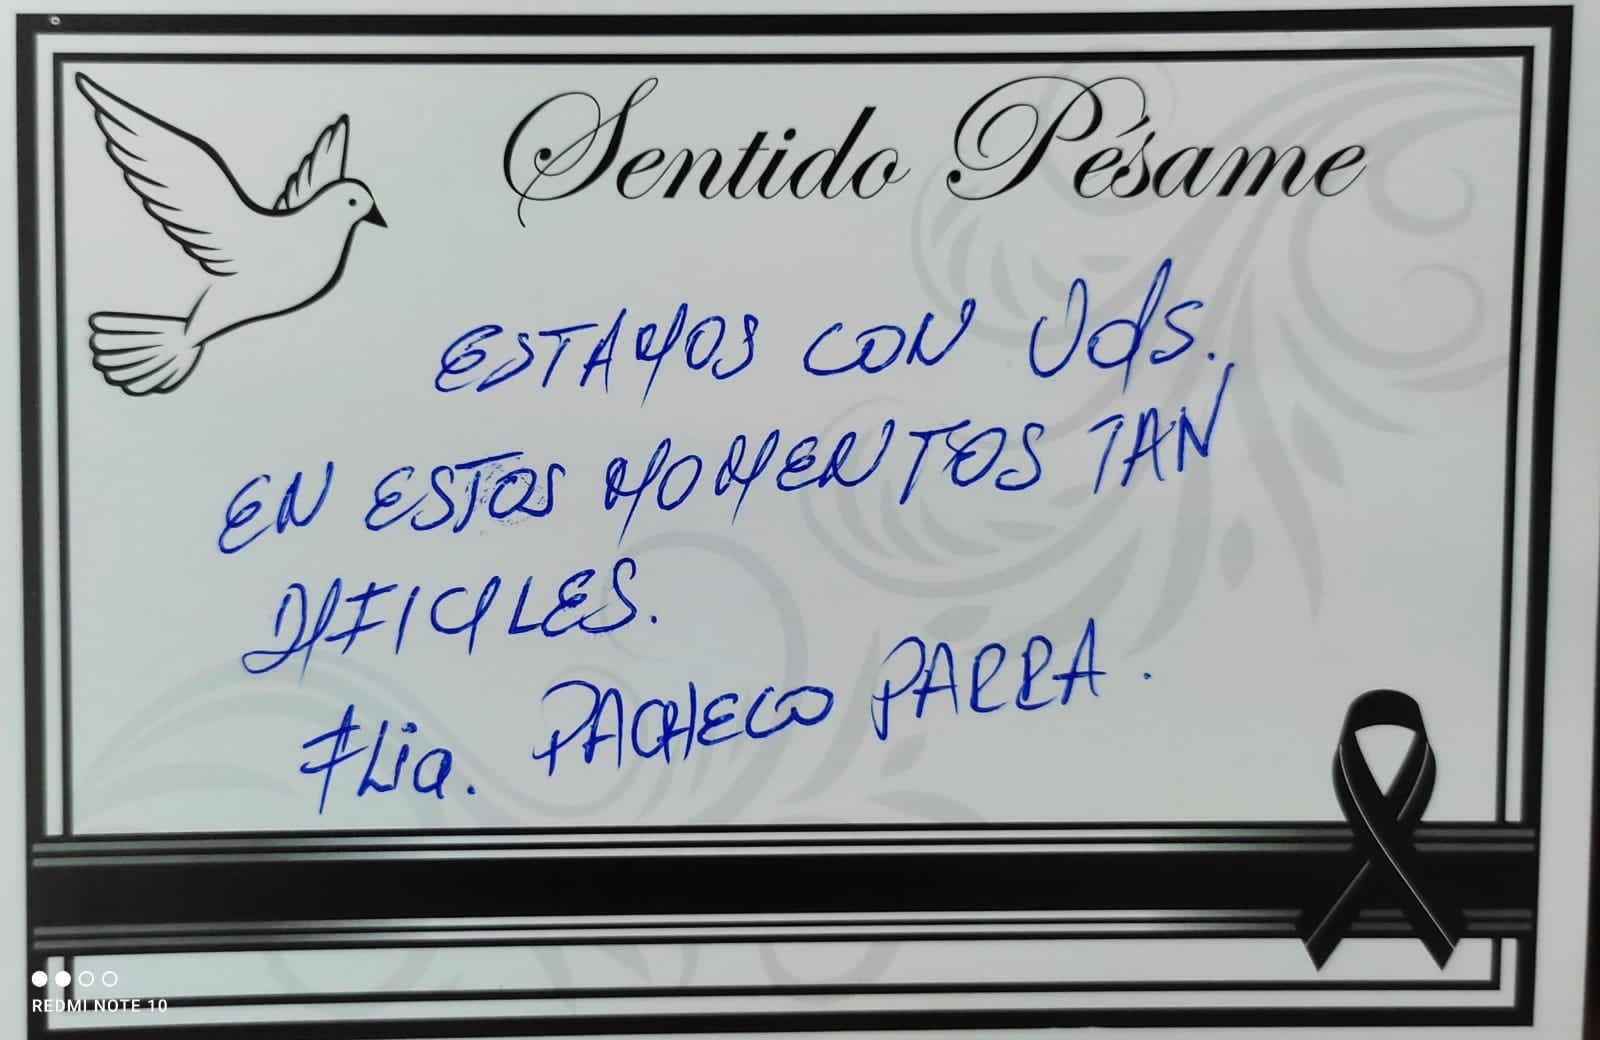 Sentido Pésame
ESTAMOS CON Uds.
EN ESTOS MOMENTOS TAN
DIFICILES.
FLia. PACHECO PARRA.
REDMI NOTE 10